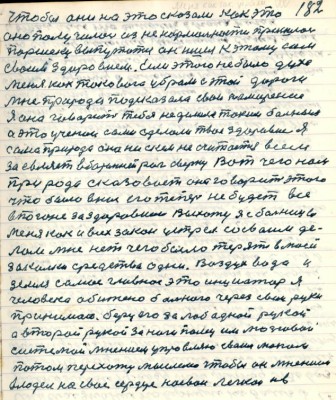 182
Чтобы они на это сказали как это
оно получилось из не нормальности пришлось
порошку выпутати он шел к этому сам
своим здоровием. Если этого не было духа
меня как такового убрал с этой дороги
мне природа подсказала свои намирение
Я она говорить тебя наделила таким больным
а это ученом сами сделали твое здоровие я
сама природа она ни сколь не считается всем
заявляет
в Вот чего нам
природа сказовает она говорит этого
что было в них его теперь не будет все
в погоне за здоровием Выхожу я с больницы
меня как и всех закон встрел со своим де-
лом мне нет чего было терять в моей
закалки средства одни. Воздух вода и
земля самое главное это инициатор я
человека обижено больного через свои руки
принимаю. беру его за лоб одной рукой
а второй рукой за ноги пальци им мозговой
системой мнением управляю своим
потом перехожу мысленно чтобы он мнением
глядел на своё сердце на свои легкое на